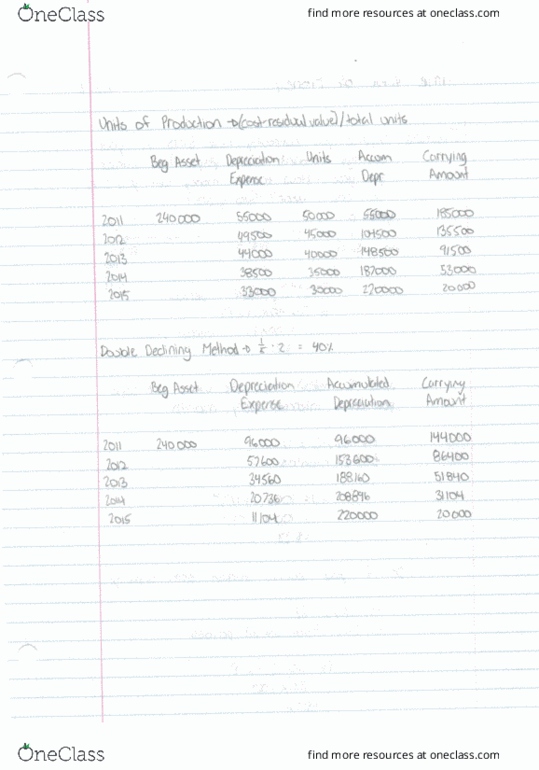 OneClass find more resources at oneclass.com
Units of Production → (cost-residual value)/total units
Beg Asset Depreciation Units Accum Carrying
Expense Depr Amount
2011 240000 55000 50000 55000 185000
2012 49500 45000 104500 135500
2013 44000 40000 148500 91500
2014 38500 35000 187000 53000
2015 33000 30000 220000 20000
Double Declining Method → 2 = 40%
Beg Asset Depreciation Accumulated Carrying
Expense Depreciation Amount
2011 240000 96000 96000 144000
2012 57600 153600 86400
2013 34560 188160 51840
2014 20736 208896 31104
2015 11104 220000 20000
OneClass find more resources at oneclass.com